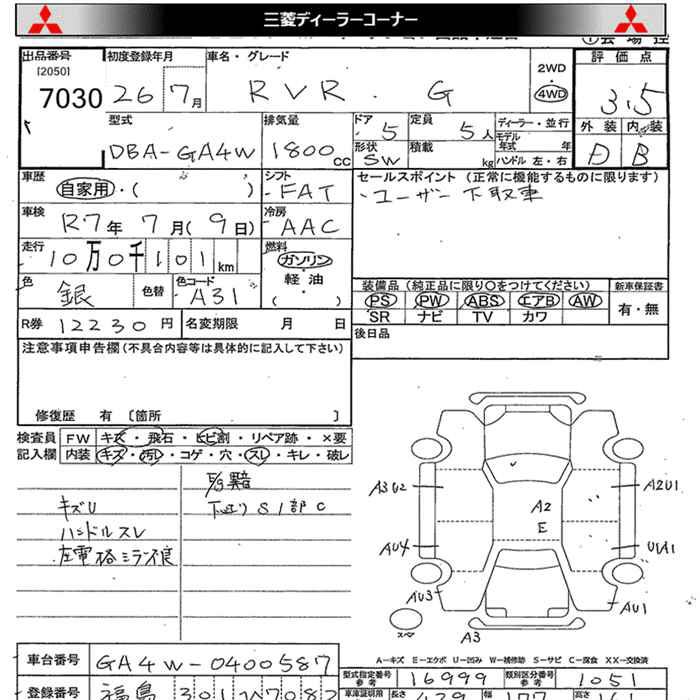 三菱ディーラーコーナー
出品番号 初度登録年月 車名・グレード 2WD 4WD 評価点
[2050]
7030 26 7月 RVR. G 3.5
型式 排気量 ドア 定員 ディーラー・並行 外装 内装
DBA-GA4W 1800cc 5 5人 モデル年式 年
形状 SW 積載 kg ハンドル 左・右 D B
車歴 シフト セールスポイント (正常に機能するものに限ります)
自家用・( ) FAT ・ユーザー下取車
車検 冷房
R7年 7月(9日) AAC
走行 燃料
10万0千101km ガソリン
軽油
( )
色 色替 色コード 装備品 (純正品に限り○をつけてください) 新車保証書
銀 A31 PS PW ABS エアB AW 有・無
R券 12230円 名変期限 月 日 SR ナビ TV カワ
後日品
注意事項申告欄(不具合内容等は具体的に記入して下さい)
修復歴 有 〔箇所 〕
検査員 FW キズ・飛石・ヒビ割・リペア跡・×要
記入欄 内装 キズ・汚レ・コゲ・穴・スレ・キレ・破レ
キズU
ハンドルスレ
左電格ミラー不良
下廻りS1部C
A3U2 A2U1
A2
E
AU4 U1A1
AU3 AU1
A3
A-キズ E-エクボ U-凹み W-補修跡 S-サビ C-腐食 XX-交換済
車台番号 GA4W-0400587
型式指定番号 参考 16999 類別区分番号 参考 1051
登録番号 福島 301
長さ 幅 高さ